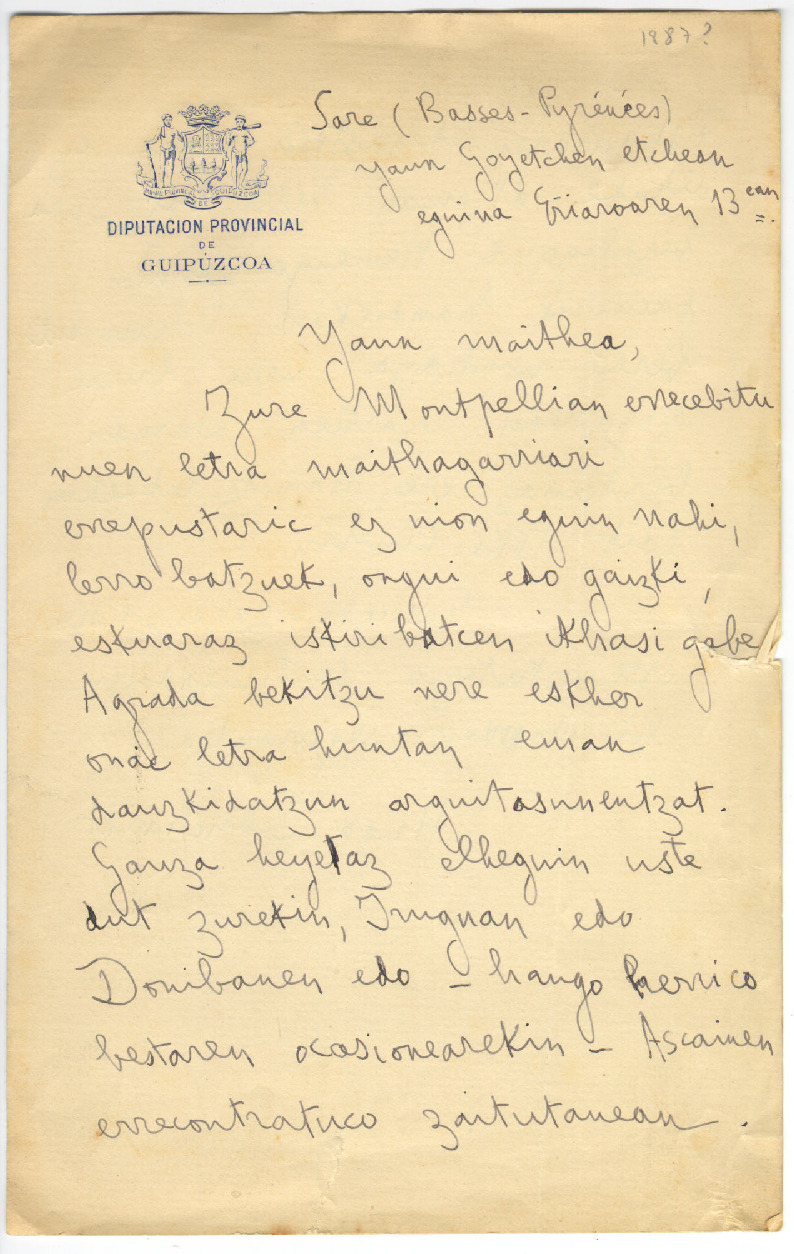 1887?
Sare (Basses-Pyrénées)
Yann Goyetchen etchean
eguina Garoaren 13ean
DIPUTACION PROVINCIAL
DE
GUIPÚZCOA
Yann maithea,
Zure Montpellian errecebitu
nuen letra maithagarriari
errepustaric ez nion eguin nahi,
lerro batzuek, ongui edo gaizki,
eskuaraz iskiribatcen ikhasi gabe
Agrada bekitzu nere eskher
onac letra huntan eman
dauzkidatzun arguitasunentzat.
Gauza heyetaz elheguin uste
dut zurekin, Irugnan edo
Donibanen edo – hango herrico
bestaren ocasionearekin – Ascainen
errecontratuco zaitutanean.